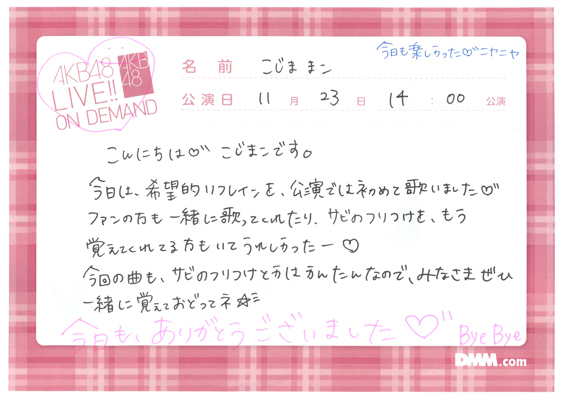 今日も楽しかった♡ニヤニヤ
AKB48
LIVE!!
ON DEMAND
AKB
48
名前 こじままン
公演日 11月23日 14:00公演
こんにちは♡ こじまンです。
今日は、希望的リフレインを、公演では初めて歌いました♡
ファンの方も一緒に歌ってくれたり、サビのフリつけを、もう
覚えてくれてる方もいてうれしかったー♡
今回の曲も、サビのフリつけとかはかんたんなので、みなさまぜひ
一緒に覚えておどってネ☆ミ
今日も、ありがとうございました♡ Bye Bye
DMM.com